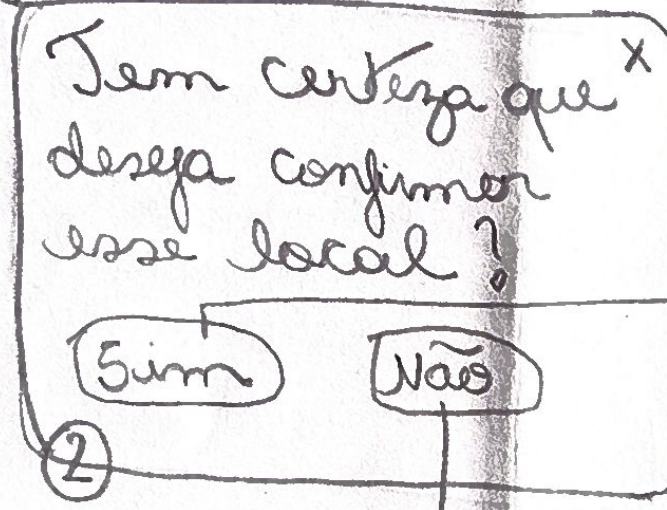 X
Tem certeza que
deseja confirmar
esse local?
Sim Não
2